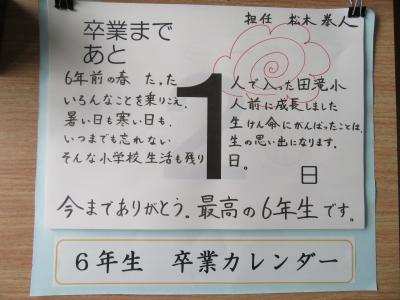 担任 松木
卒業まで
あと
1
日
6年前の春 たった 人で入った田滝小
いろんなことを乗りこえ、 人前に成長しました
暑い日も寒い日も、 生けん命にがんばったことは、
いつまでも忘れない 生の思い出になります。
そんな小学校生活も残り 日。
今までありがとう。最高の6年生です。
6年生 卒業カレンダー